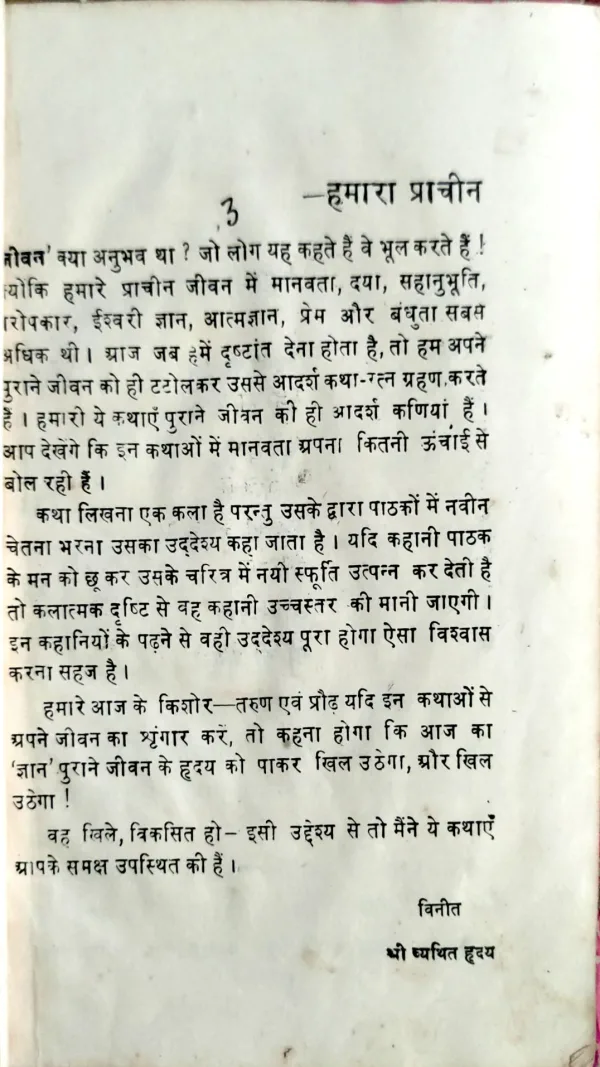 3
—हमारा प्राचीन
जीवन' क्या अनुभव था ? जो लोग यह कहते हैं वे भूल करते हैं !
क्योकि हमारे प्राचीन जीवन में मानवता, दया, सहानुभूति,
परोपकार, ईश्वरी ज्ञान, आत्मज्ञान, प्रेम और बंधुता सबसे
अधिक थी । आज जब हमें दृष्टांत देना होता है, तो हम अपने
पुराने जीवन को ही टटोलकर उससे आदर्श कथा-रत्न ग्रहण करते
हैं । हमारी ये कथाएँ पुराने जीवन की ही आदर्श कणियां हैं ।
आप देखेंगे कि इन कथाओं में मानवता अपना कितनी ऊंचाई से
बोल रही हैं ।
कथा लिखना एक कला है परन्तु उसके द्वारा पाठकों में नवीन
चेतना भरना उसका उद्देश्य कहा जाता है । यदि कहानी पाठक
के मन को छू कर उसके चरित्र में नयी स्फूर्ति उत्पन्न कर देती है
तो कलात्मक दृष्टि से वह कहानी उच्चस्तर की मानी जाएगी ।
इन कहानियों के पढ़ने से वही उद्देश्य पूरा होगा ऐसा विश्वास
करना सहज है ।
हमारे आज के किशोर—तरुण एवं प्रौढ़ यदि इन कथाओं से
अपने जीवन का शृंगार करें, तो कहना होगा कि आज का
'ज्ञान' पुराने जीवन के हृदय को पाकर खिल उठेगा, और खिल
उठेगा !
वह खिले, विकसित हो— इसी उद्देश्य से तो मैंने ये कथाएँ
आपके समक्ष उपस्थित की हैं ।
विनीत
श्री व्यथित हृदय